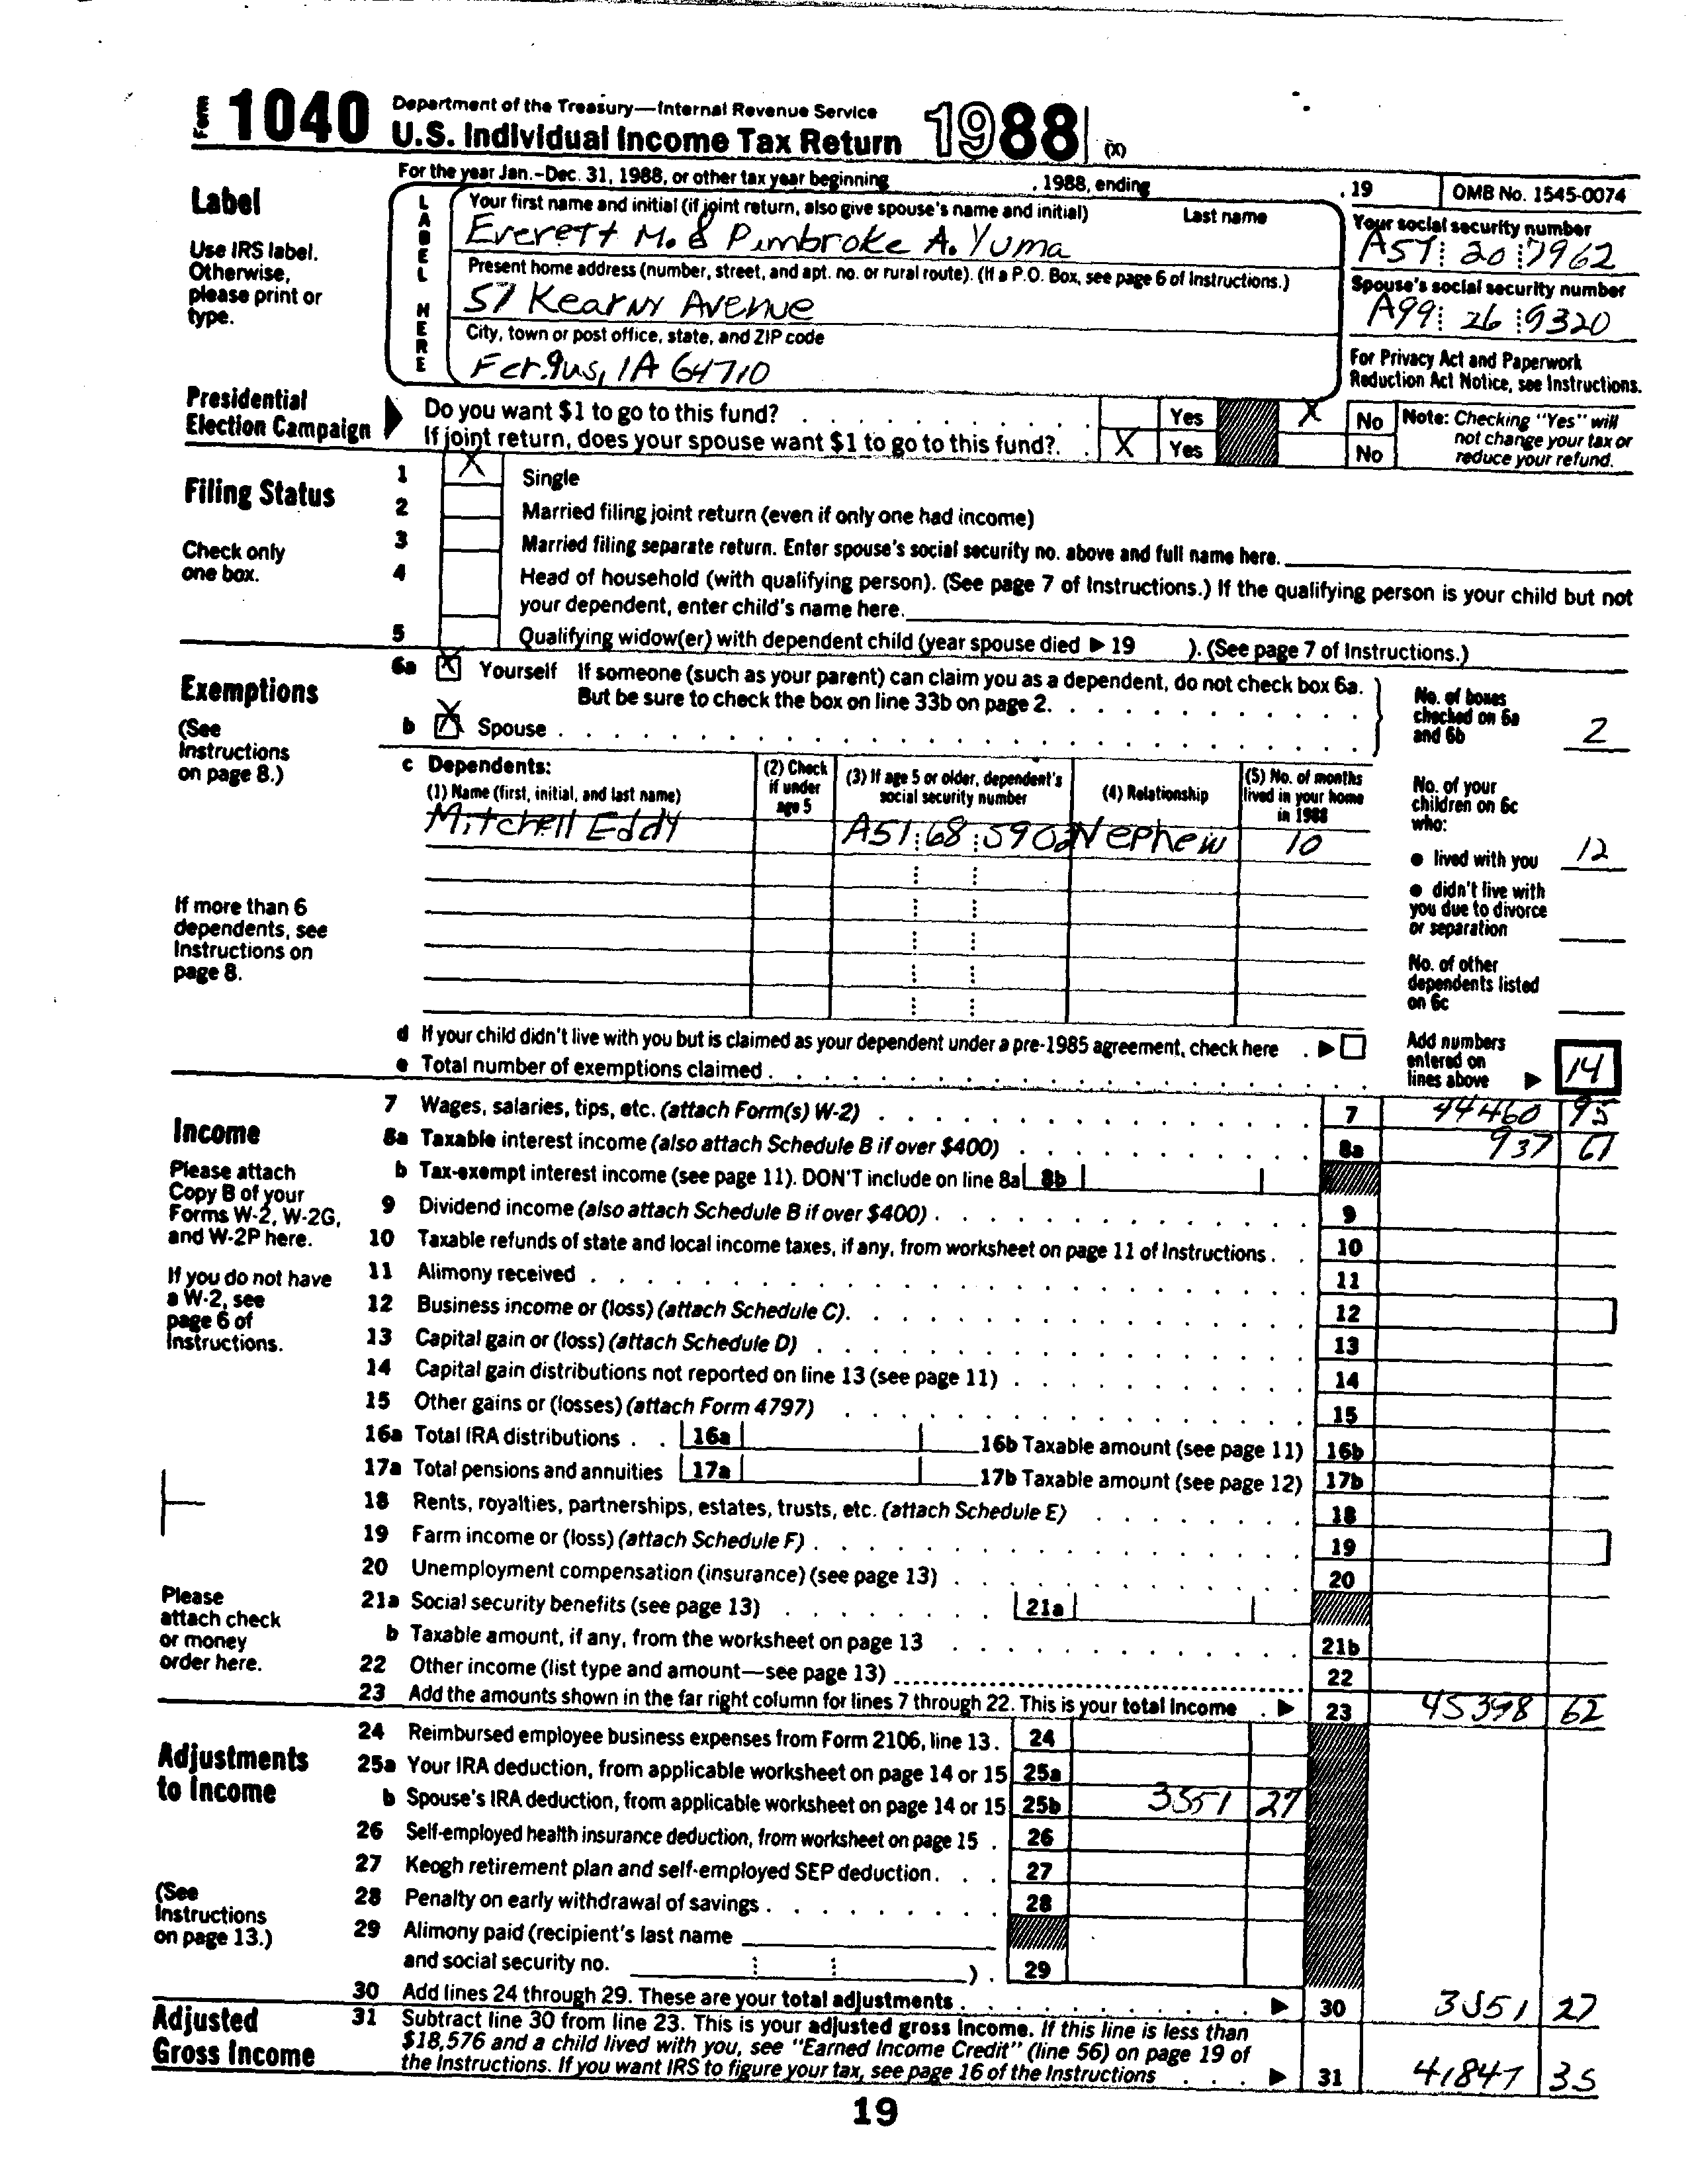 Form 1040 Department of the Treasury—Internal Revenue Service
U.S. Individual Income Tax Return 1988 (X)
For the year Jan.-Dec. 31, 1988, or other tax year beginning , 1988, ending , 19 OMB No. 1545-0074
Label
Use IRS label.
Otherwise,
please print or
type.
LABEL HERE
Your first name and initial (if joint return, also give spouse's name and initial) Last name
Everett M. & Pembroke A. Yuma
Your social security number
A57 20 7962
Present home address (number, street, and apt. no. or rural route). (If a P.O. Box, see page 6 of Instructions.)
57 Kearny Avenue
Spouse's social security number
A99 26 9320
City, town or post office, state, and ZIP code
Fergus, IA 64710
For Privacy Act and Paperwork
Reduction Act Notice, see Instructions.
Presidential
Election Campaign
Do you want $1 to go to this fund? Yes X No
If joint return, does your spouse want $1 to go to this fund? X Yes No
Note: Checking "Yes" will
not change your tax or
reduce your refund.
Filing Status
Check only
one box.
1 X Single
2 Married filing joint return (even if only one had income)
3 Married filing separate return. Enter spouse's social security no. above and full name here.
4 Head of household (with qualifying person). (See page 7 of Instructions.) If the qualifying person is your child but not
your dependent, enter child's name here.
5 Qualifying widow(er) with dependent child (year spouse died ▶ 19 ). (See page 7 of Instructions.)
Exemptions
(See
Instructions
on page 8.)
6a X Yourself If someone (such as your parent) can claim you as a dependent, do not check box 6a.
But be sure to check the box on line 33b on page 2.
b X Spouse
No. of boxes
checked on 6a
and 6b 2
c Dependents:
(1) Name (first, initial, and last name)
(2) Check
if under
age 5
(3) If age 5 or older, dependent's
social security number
(4) Relationship
(5) No. of months
lived in your home
in 1988
Mitchell Eddy A51 68 5902 Nephew 10
No. of your
children on 6c
who:
● lived with you 12
● didn't live with
you due to divorce
or separation
No. of other
dependents listed
on 6c
If more than 6
dependents, see
Instructions on
page 8.
d If your child didn't live with you but is claimed as your dependent under a pre-1985 agreement, check here ▶
e Total number of exemptions claimed
Add numbers
entered on
lines above ▶ 14
Income
Please attach
Copy B of your
Forms W-2, W-2G,
and W-2P here.
If you do not have
a W-2, see
page 6 of
Instructions.
Please
attach check
or money
order here.
7 Wages, salaries, tips, etc. (attach Form(s) W-2) 7 44460
8a Taxable interest income (also attach Schedule B if over $400) 8a 937 61
b Tax-exempt interest income (see page 11). DON'T include on line 8a 8b
9 Dividend income (also attach Schedule B if over $400) 9
10 Taxable refunds of state and local income taxes, if any, from worksheet on page 11 of Instructions 10
11 Alimony received 11
12 Business income or (loss) (attach Schedule C) 12
13 Capital gain or (loss) (attach Schedule D) 13
14 Capital gain distributions not reported on line 13 (see page 11) 14
15 Other gains or (losses) (attach Form 4797) 15
16a Total IRA distributions 16a 16b Taxable amount (see page 11) 16b
17a Total pensions and annuities 17a 17b Taxable amount (see page 12) 17b
18 Rents, royalties, partnerships, estates, trusts, etc. (attach Schedule E) 18
19 Farm income or (loss) (attach Schedule F) 19
20 Unemployment compensation (insurance) (see page 13) 20
21a Social security benefits (see page 13) 21a
b Taxable amount, if any, from the worksheet on page 13 21b
22 Other income (list type and amount—see page 13) 22
23 Add the amounts shown in the far right column for lines 7 through 22. This is your total income ▶ 23 45398 62
Adjustments
to Income
(See
Instructions
on page 13.)
24 Reimbursed employee business expenses from Form 2106, line 13. 24
25a Your IRA deduction, from applicable worksheet on page 14 or 15 25a
b Spouse's IRA deduction, from applicable worksheet on page 14 or 15 25b 3551 27
26 Self-employed health insurance deduction, from worksheet on page 15 26
27 Keogh retirement plan and self-employed SEP deduction 27
28 Penalty on early withdrawal of savings 28
29 Alimony paid (recipient's last name
and social security no. ) 29
30 Add lines 24 through 29. These are your total adjustments ▶ 30 3551 27
Adjusted
Gross Income
31 Subtract line 30 from line 23. This is your adjusted gross income. If this line is less than
$18,576 and a child lived with you, see "Earned Income Credit" (line 56) on page 19 of
the Instructions. If you want IRS to figure your tax, see page 16 of the Instructions ▶ 31 41847 35
19